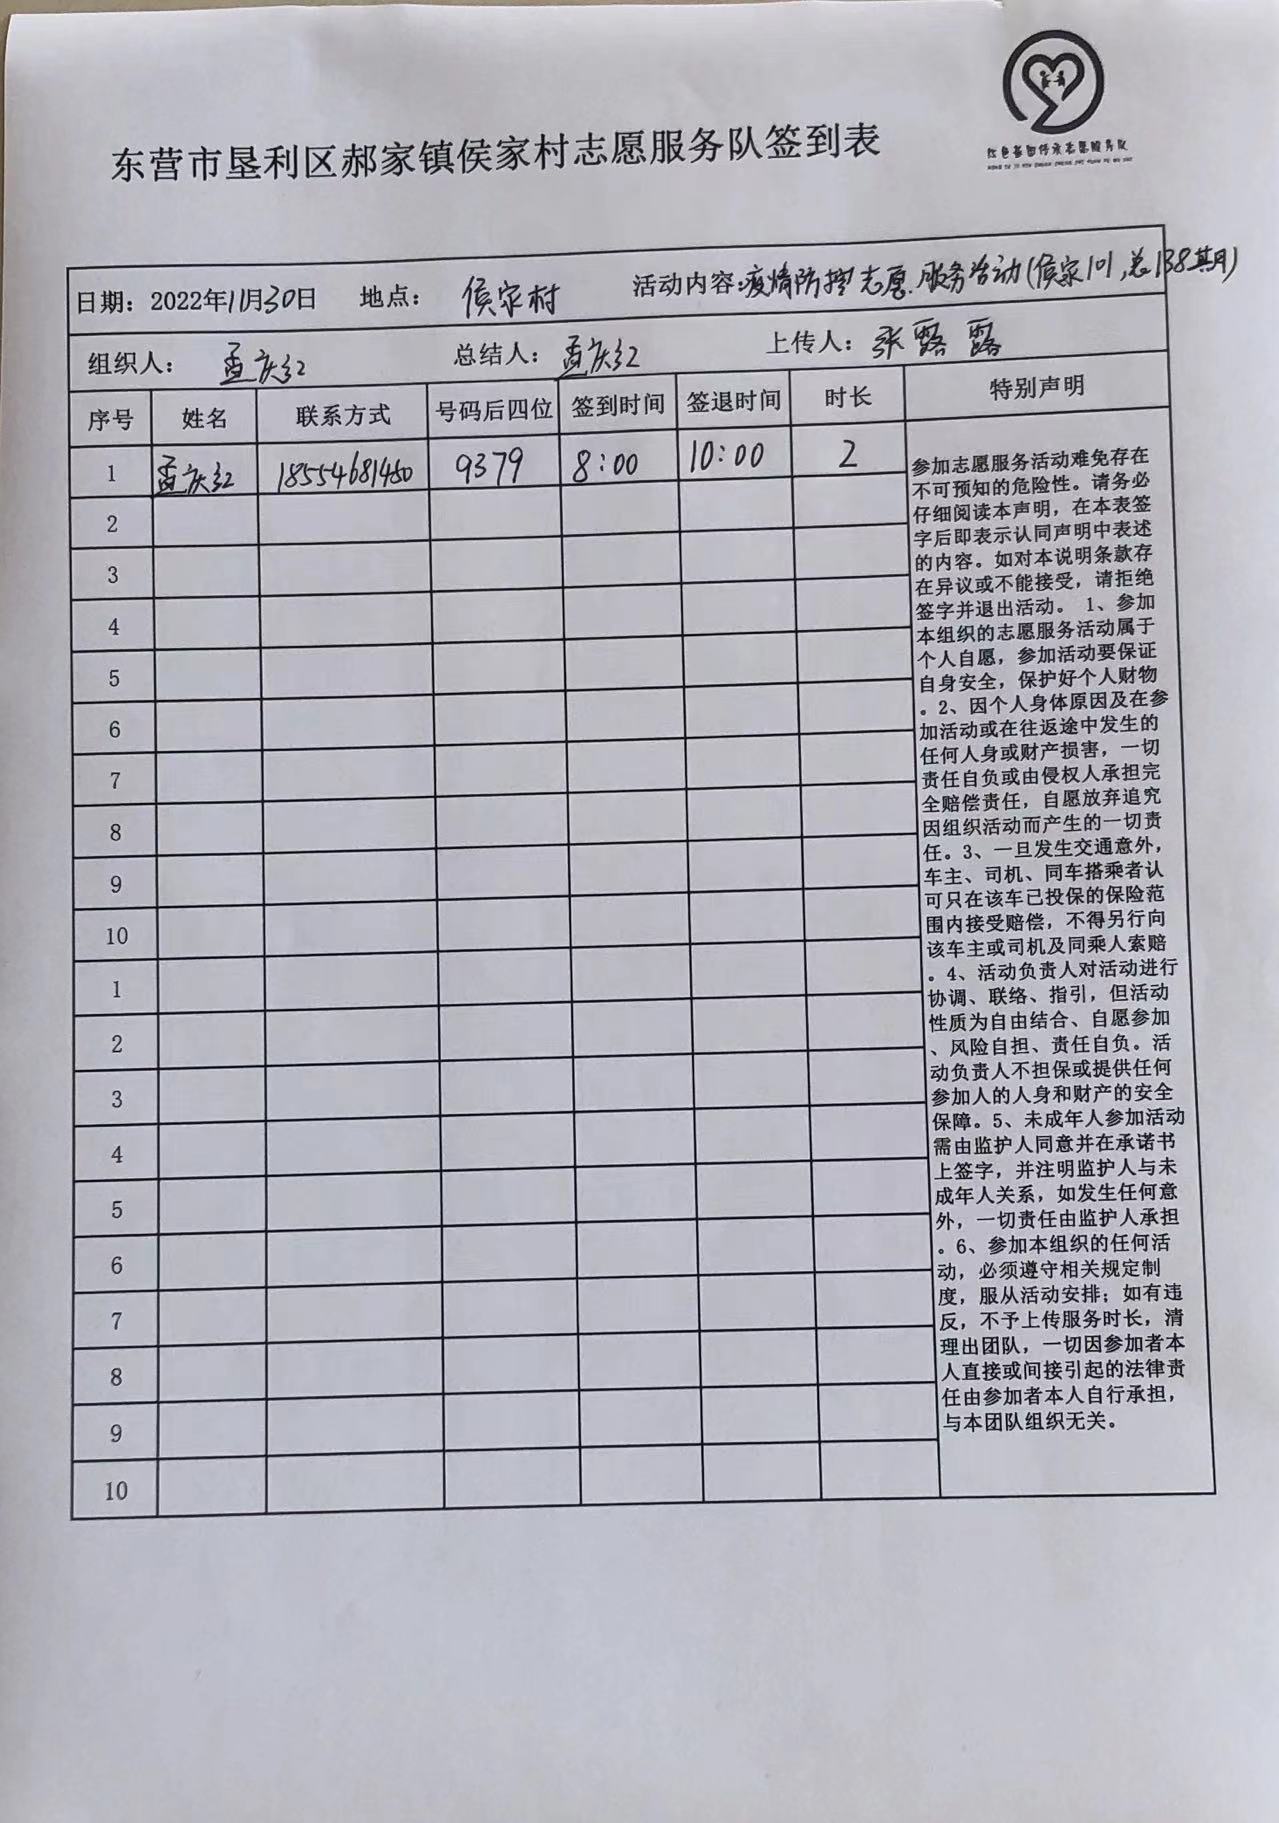 红色基因传承志愿服务队
东营市垦利区郝家镇侯家村志愿服务队签到表
日期：2022年11月30日 地点： 侯家村 活动内容：疫情防控志愿服务活动(侯家101,总138期)
组织人： 孟庆红 总结人：孟庆红 上传人：张露露
序号 姓名 联系方式 号码后四位 签到时间 签退时间 时长 特别声明
1 孟庆红 18554681450 9379 8:00 10:00 2
2
3
4
5
6
7
8
9
10
1
2
3
4
5
6
7
8
9
10
参加志愿服务活动难免存在
不可预知的危险性。请务必
仔细阅读本声明，在本表签
字后即表示认同声明中表述
的内容。如对本说明条款存
在异议或不能接受，请拒绝
签字并退出活动。 1、参加
本组织的志愿服务活动属于
个人自愿，参加活动要保证
自身安全，保护好个人财物
。2、因个人身体原因及在参
加活动或在往返途中发生的
任何人身或财产损害，一切
责任自负或由侵权人承担完
全赔偿责任，自愿放弃追究
因组织活动而产生的一切责
任。3、一旦发生交通意外，
车主、司机、同车搭乘者认
可只在该车已投保的保险范
围内接受赔偿，不得另行向
该车主或司机及同乘人索赔
。4、活动负责人对活动进行
协调、联络、指引，但活动
性质为自由结合、自愿参加
、风险自担、责任自负。活
动负责人不担保或提供任何
参加人的人身和财产的安全
保障。5、未成年人参加活动
需由监护人同意并在承诺书
上签字，并注明监护人与未
成年人关系，如发生任何意
外，一切责任由监护人承担
。6、参加本组织的任何活
动，必须遵守相关规定制
度，服从活动安排；如有违
反，不予上传服务时长，清
理出团队，一切因参加者本
人直接或间接引起的法律责
任由参加者本人自行承担，
与本团队组织无关。